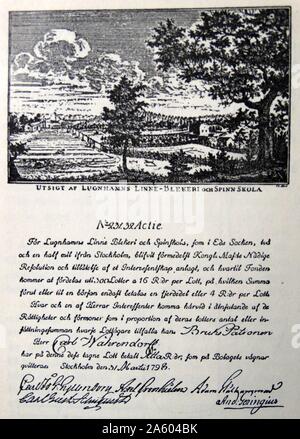 UTSIGT AF LUGNHAMNS LINNE-BLEKERI OCH SPINN SKOLA
Actie.
För Lugnhamns Linne Blekeri och Spinskola, som i Eds Socken, två
och en half mil ifrån Stockholm, blifvit förmedelst Kongl. Majts Nådige
Resolution och tillåtelse af et Interesseskap anlagt, och hvartil Fonden
kommer at fördelas uti Lotter a 16 R:dr per Lott, på hvilken Summa
förut eller til en början endast betalas en fjerdedel eller 4 R:dr per Lott
Hvar och en af Herrar Interessenter komma härvid i åtnjutande af de
Rättigheter och förmoner som i proportion af deras lotters antal eller in-
sättningssumman hvarje Lottägare tilfalla kan; Bruks Patronen
Herr Carl Wahrendorff
har på denna dess tagne Lott betalt R:dr, som på Bolagets vägnar
qvitteras Stockholm 31 Martii 1798.
alamy
Image ID: 2A604BK
www.alamy.com